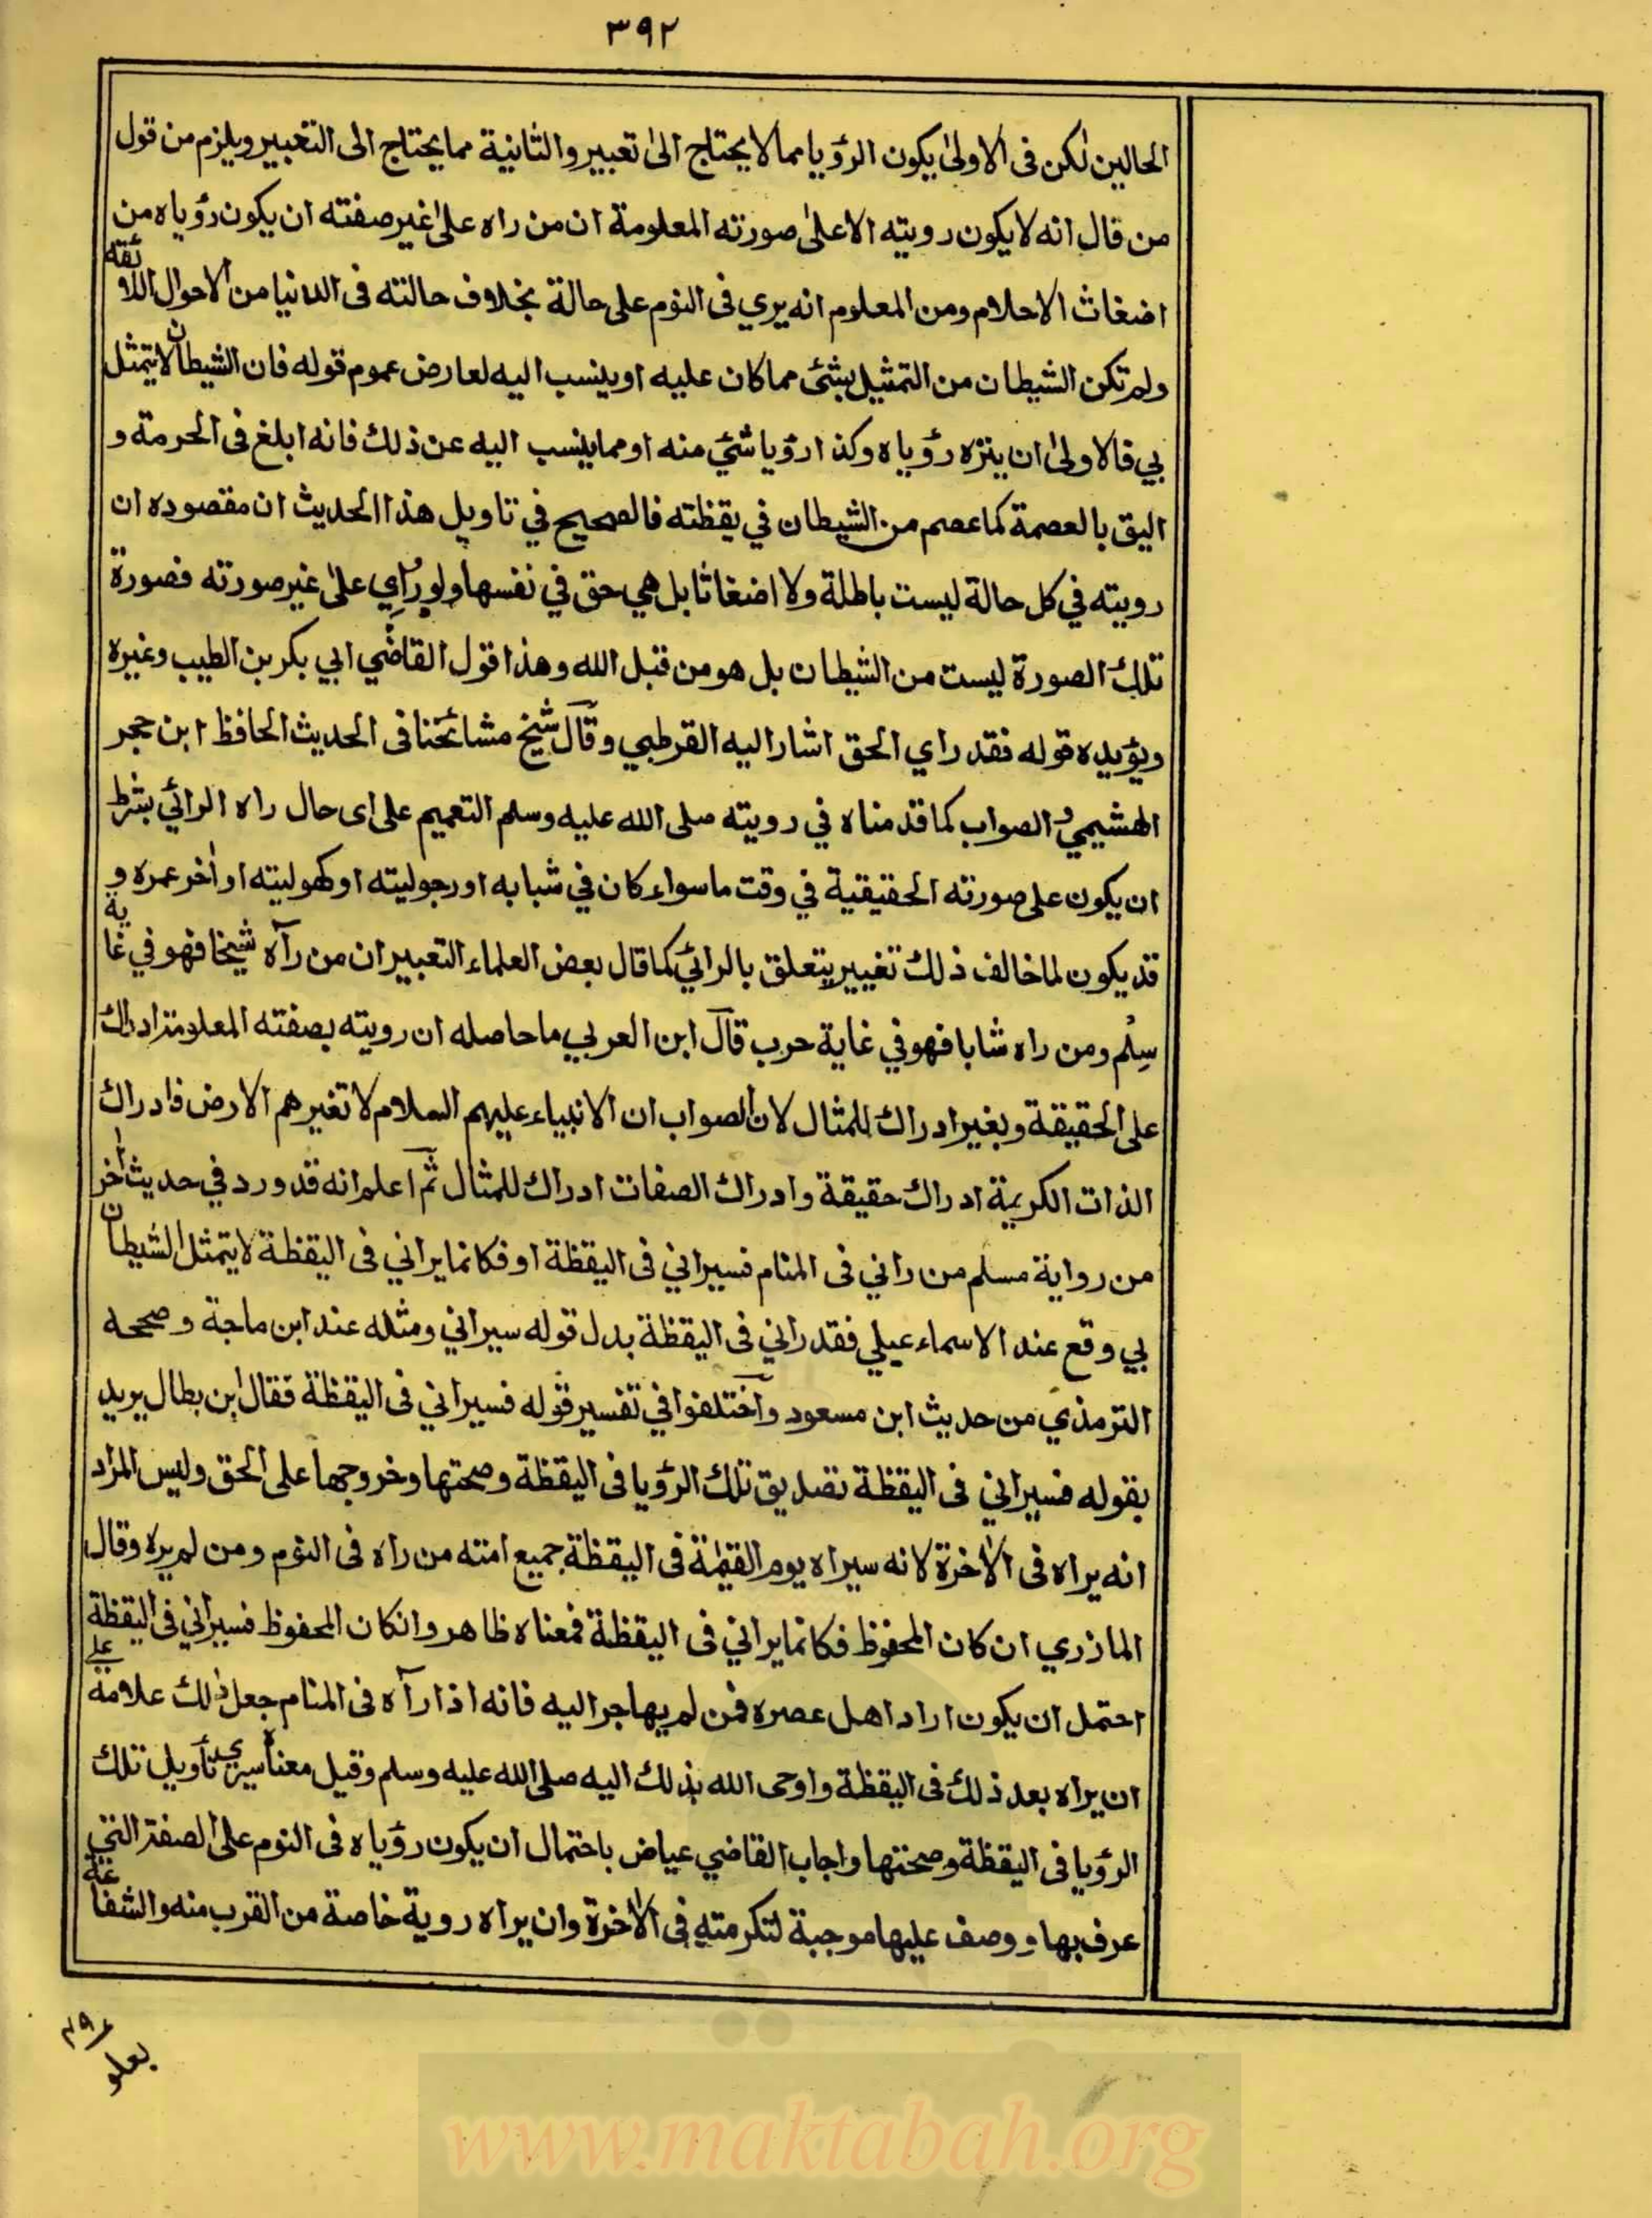 ٣٩٢
الحالين لكن فى الاولىٰ يكون الرؤيا مما لا يحتاج الىٰ تعبير والثانية مما يحتاج الى التعبير ويلزم من قول
من قال انه لا يكون رويته الا علىٰ صورته المعلومة ان من راه علىٰ غير صفته ان يكون رؤياه من
اضغاث الاحلام ومن المعلوم انه يري فى النوم على حالة بخلاف حالته فى الدنيا من الاحوال اللائقة
ولم تكن الشيطان من التمثيل بشئ مما كان عليه او ينسب اليه لعارض عموم قوله فان الشيطان لا يتمثل
بي فالاولىٰ ان ينزه رؤياه وكذا رؤيا شئي منه او مما ينسب اليه عن ذلك فانه ابلغ فى الحرمة و
اليق بالعصمة كما عصم من الشيطان في يقظته فالصحيح في تاويل هذا الحديث ان مقصوده ان
رويته في كل حالة ليست باطلة ولا اضغاثا بل هي حق في نفسها ولو راي علىٰ غير صورته فصورة
تلك الصورة ليست من الشيطان بل هو من قبل الله وهذا قول القاضي ابي بكر بن الطيب وغيره
ويؤيده قوله فقد راي الحق اشار اليه القرطبي وقال شيخ مشائخنا فى الحديث الحافظ ابن حجر
الهشيمي والصواب كما قدمناه في رويته صلى الله عليه وسلم التعميم على اى حال راه الرائي بشرط
ان يكون على صورته الحقيقية في وقت ما سواء كان في شبابه او رجوليته او كهوليته او اٰخر عمره و
قد يكون لما خالف ذلك تغيير يتعلق بالرائي كما قال بعض العلماء التعبير ان من رآه شيخا فهو في غاية
سِلْم ومن راه شابا فهو في غاية حرب قال ابن العربي ما حاصله ان رويته بصفته المعلومة ادراك
على الحقيقة وبغير ادراك للمثال لان الصواب ان الانبياء عليهم السلام لا تغيرهم الارض فادراك
الذات الكريمة ادراك حقيقة وادراك الصفات ادراك للمثال ثم اعلم انه قد ورد في حديث اٰخر
من رواية مسلم من راني فى المنام فسيراني فى اليقظة او فكانما يراني فى اليقظة لا يتمثل الشيطان
بي وقع عند الاسماءعيلي فقد راني فى اليقظة بدل قوله سيراني ومثله عند ابن ماجة وصححه
الترمذي من حديث ابن مسعود واختلفوا في تفسير قوله فسيراني فى اليقظة فقال ابن بطال يريد
بقوله فسيراني فى اليقظة تصديق تلك الرؤيا فى اليقظة وصحتها وخروجها على الحق وليس المراد
انه يراه فى الاٰخرة لانه سيراه يوم القيٰمة فى اليقظة جميع امته من راه فى النوم ومن لم يره وقال
المازري ان كان المحفوظ فكانما يراني فى اليقظة فمعناه ظاهر وانكان المحفوظ فسيراني فى اليقظة
احتمل ان يكون اراد اهل عصره فمن لم يهاجر اليه فانه اذا رآه فى المنام جعل ذلك علامة على
ان يراه بعد ذلك فى اليقظة واوحى الله بذلك اليه صلى الله عليه وسلم وقيل معناه سيري تأويل تلك
الرؤيا فى اليقظة وصحتها واجاب القاضي عياض باحتمال ان يكون رؤياه فى النوم على الصفة التي
عرف بها ووصف عليها موجبة لتكرمته فى الاٰخرة وان يراه روية خاصة من القرب منه والشفاعة
www.maktabah.org